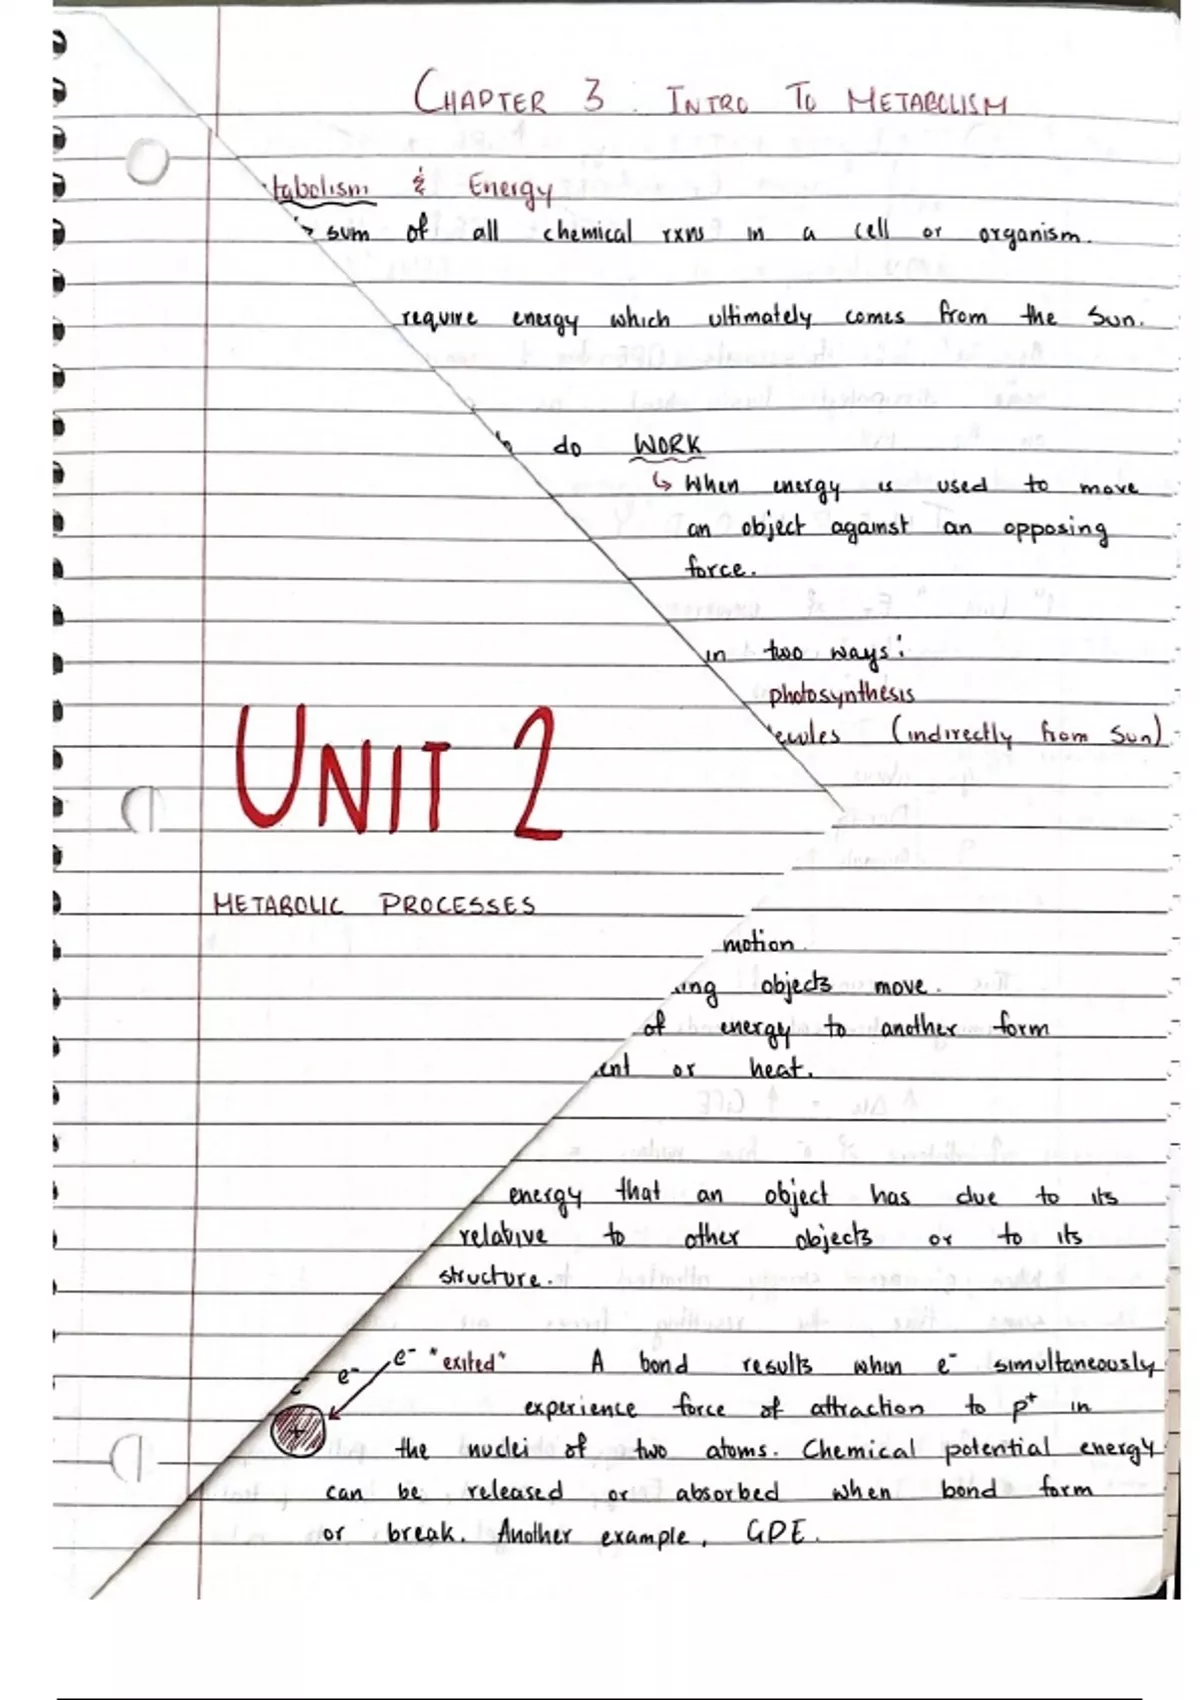 CHAPTER 3. INTRO TO METABOLISM
tabolism & Energy
↳ sum of all chemical rxns in a cell or organism.
require energy which ultimately comes from the Sun.
do WORK
↳ When energy is used to move
an object against an opposing
force.
in two ways:
photosynthesis
ecules (indirectly from Sun)
UNIT 2
METABOLIC PROCESSES
motion.
ing objects move.
of energy to another form
ent or heat.
energy that an object has due to its
relative to other objects or to its
structure.
e- e- e- "exited" A bond results when e- simultaneously
experience force of attraction to p+ in
+ the nuclei of two atoms. Chemical potential energy
can be released or absorbed when bond form
or break. Another example, GPE.